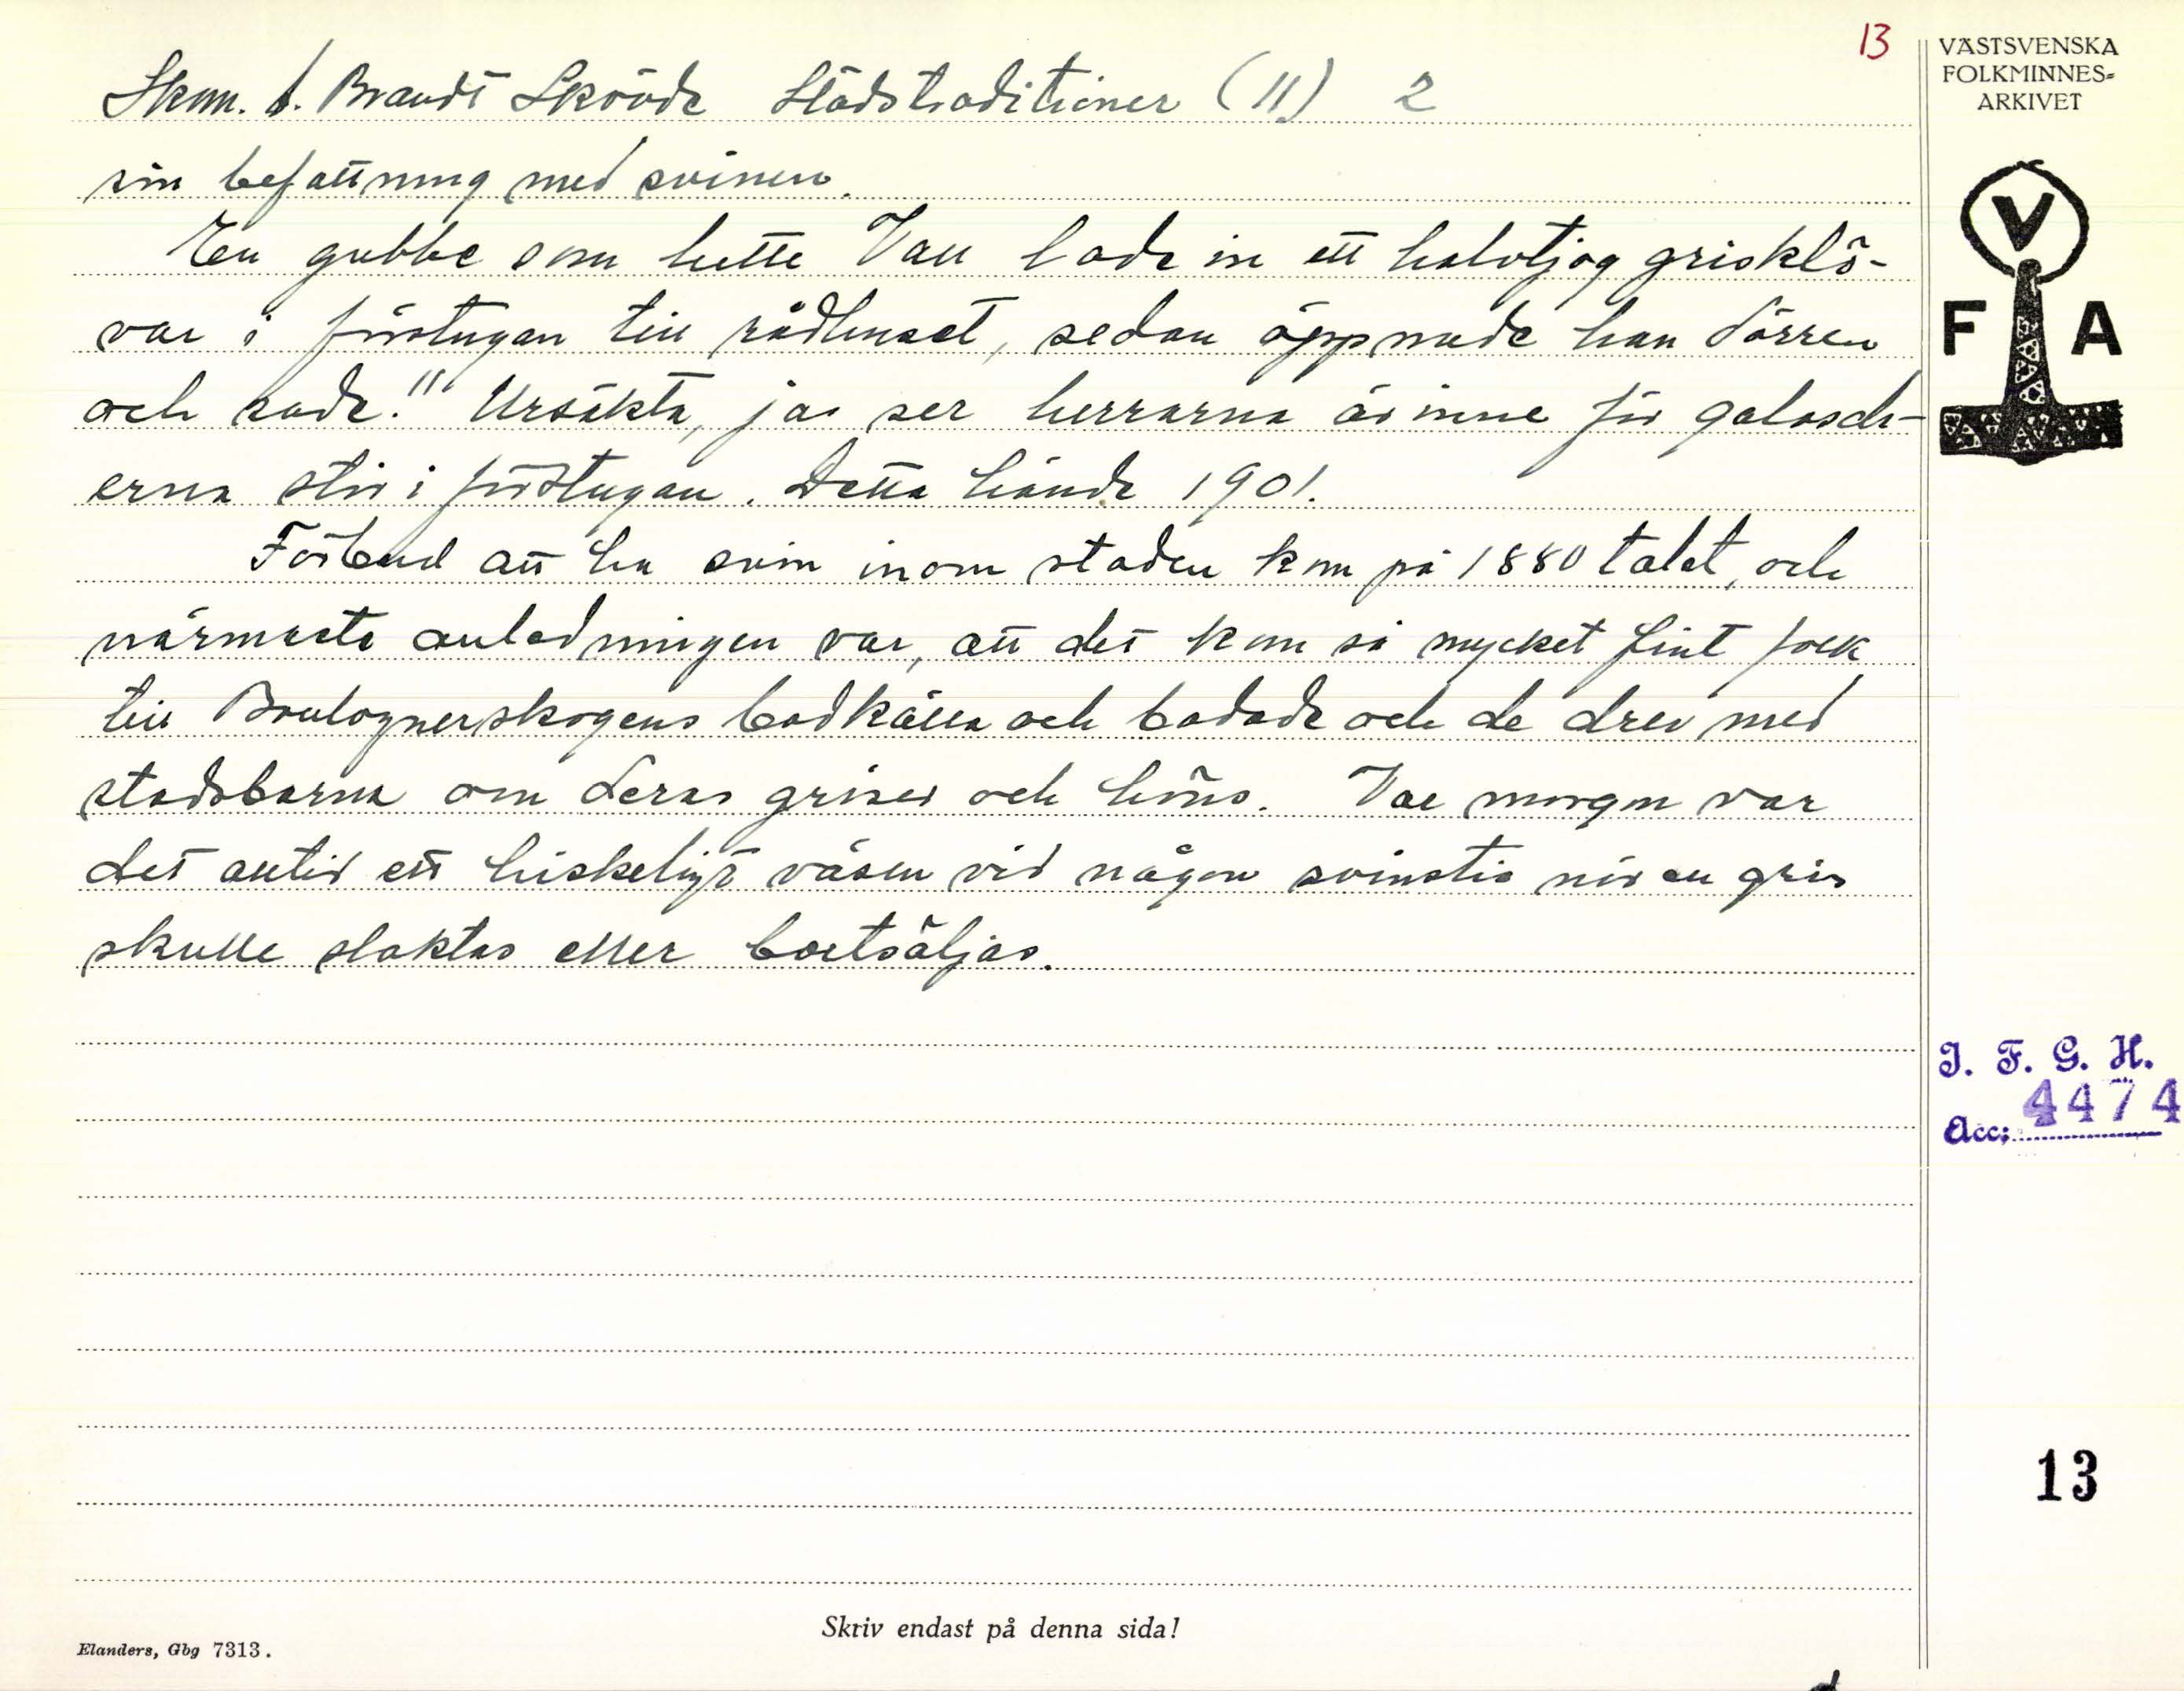 13
VÄSTSVENSKA
FOLKMINNES-
ARKIVET
Skom. b. Brandt Skövde Stadstraditioner (11) 2
sin befattning med svinen.
En gubbe som hette Vall lade in ett halvtjog grisklö-
var i förstugan till rådhuset, sedan öppnade han dörren
och sade." Ursäkta, jas ser herrarna är inne för galosch-
erna står i förstugan. Detta hände 1901.
Förbud att ha svin inom staden kom på 1880 talet, och
närmaste anledningen var, att det kom så mycket fint folk
till Boulognerskogens badkälla och badade och de drev med
stadsbarna om deras griser och höns. Var morgon var
det alltid ett hiskeligt väsen vid någon svinstia när en gris
skulle slaktas eller bortsäljas.
V
F A
I. F. G. H.
Acc: 4474
13
Skriv endast på denna sida!
Elanders, Gbg 7313.